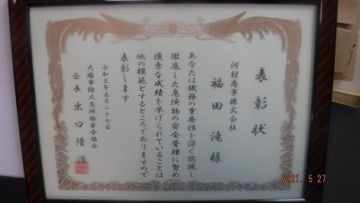 表彰状
河村商事株式会社
福田 滝 様
あなたは職務の重要性を深く認識し
徹底した危険物の安全管理に努め
優秀な成績を挙げられていることは
他の模範とするところでありますので
表彰します
令和三年五月二十七日
大府市陸上危険物安全協会
会長 出口 隆
2021. 5.27